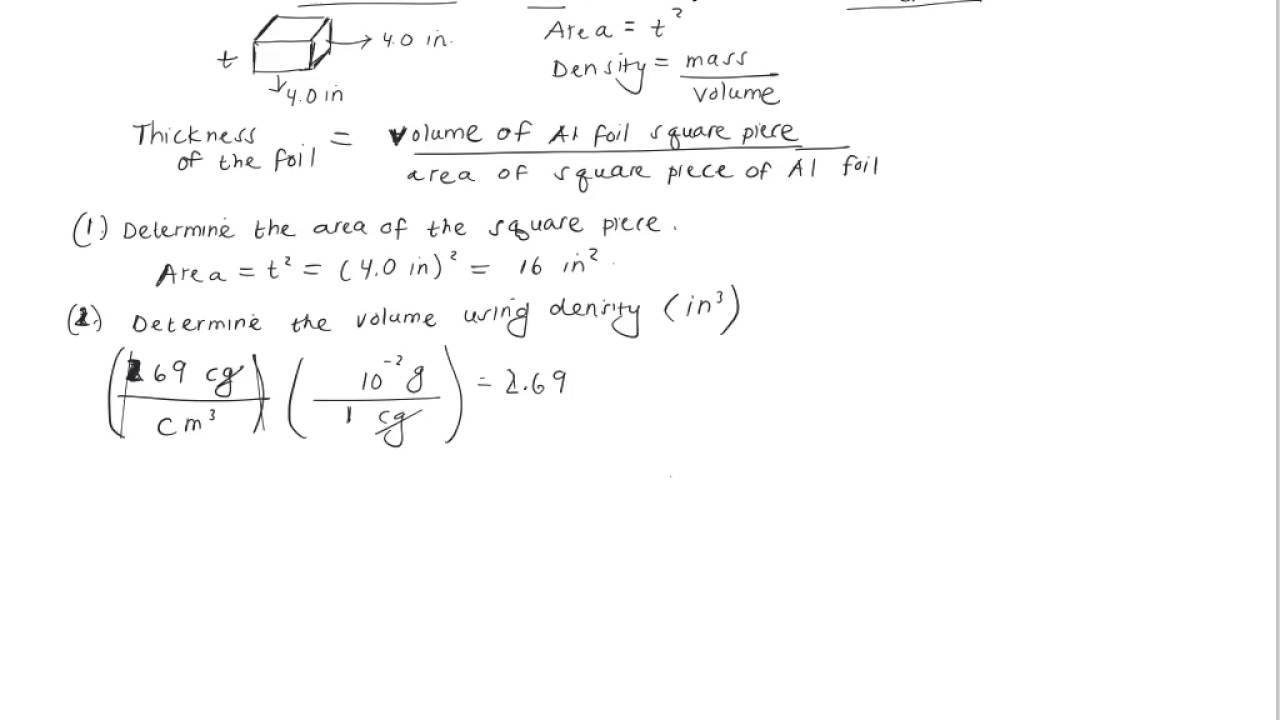 4.0 in.
Area = t²
t
Density = mass / volume
4.0 in
Thickness of the foil = volume of Al foil square piece / area of square piece of Al foil
(1.) Determine the area of the square piece.
Area = t² = (4.0 in)² = 16 in²
(2.) Determine the volume using density (in³)
(269 cg / cm³) (10⁻² g / 1 cg) = 2.69